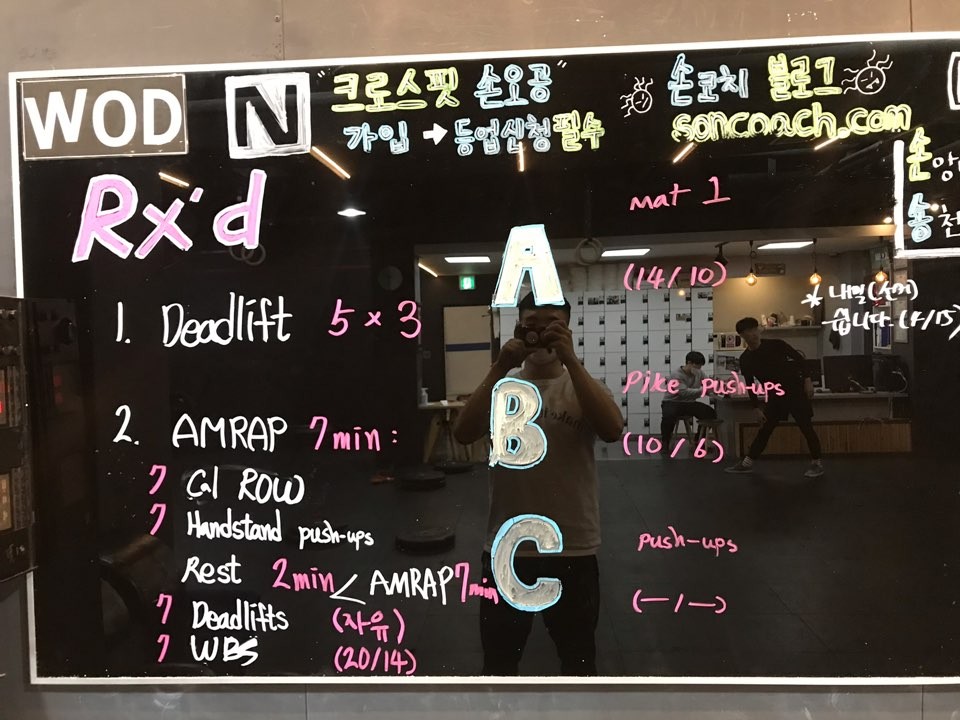 WOD N "크로스핏 손오공" 손코치 블로그
가입 → 등업신청 필수 soncoach.com
손
송
Rx'd
1. Deadlift 5 × 3
2. AMRAP 7min :
7 Cal ROW
7 Handstand push-ups
Rest 2min < AMRAP 7min
7 Deadlifts (자유)
7 WBS (20/14)
A
mat 1
(14/10)
B
Pike push-ups
(10/6)
C
push-ups
(—/—)
* 내일
습니다.